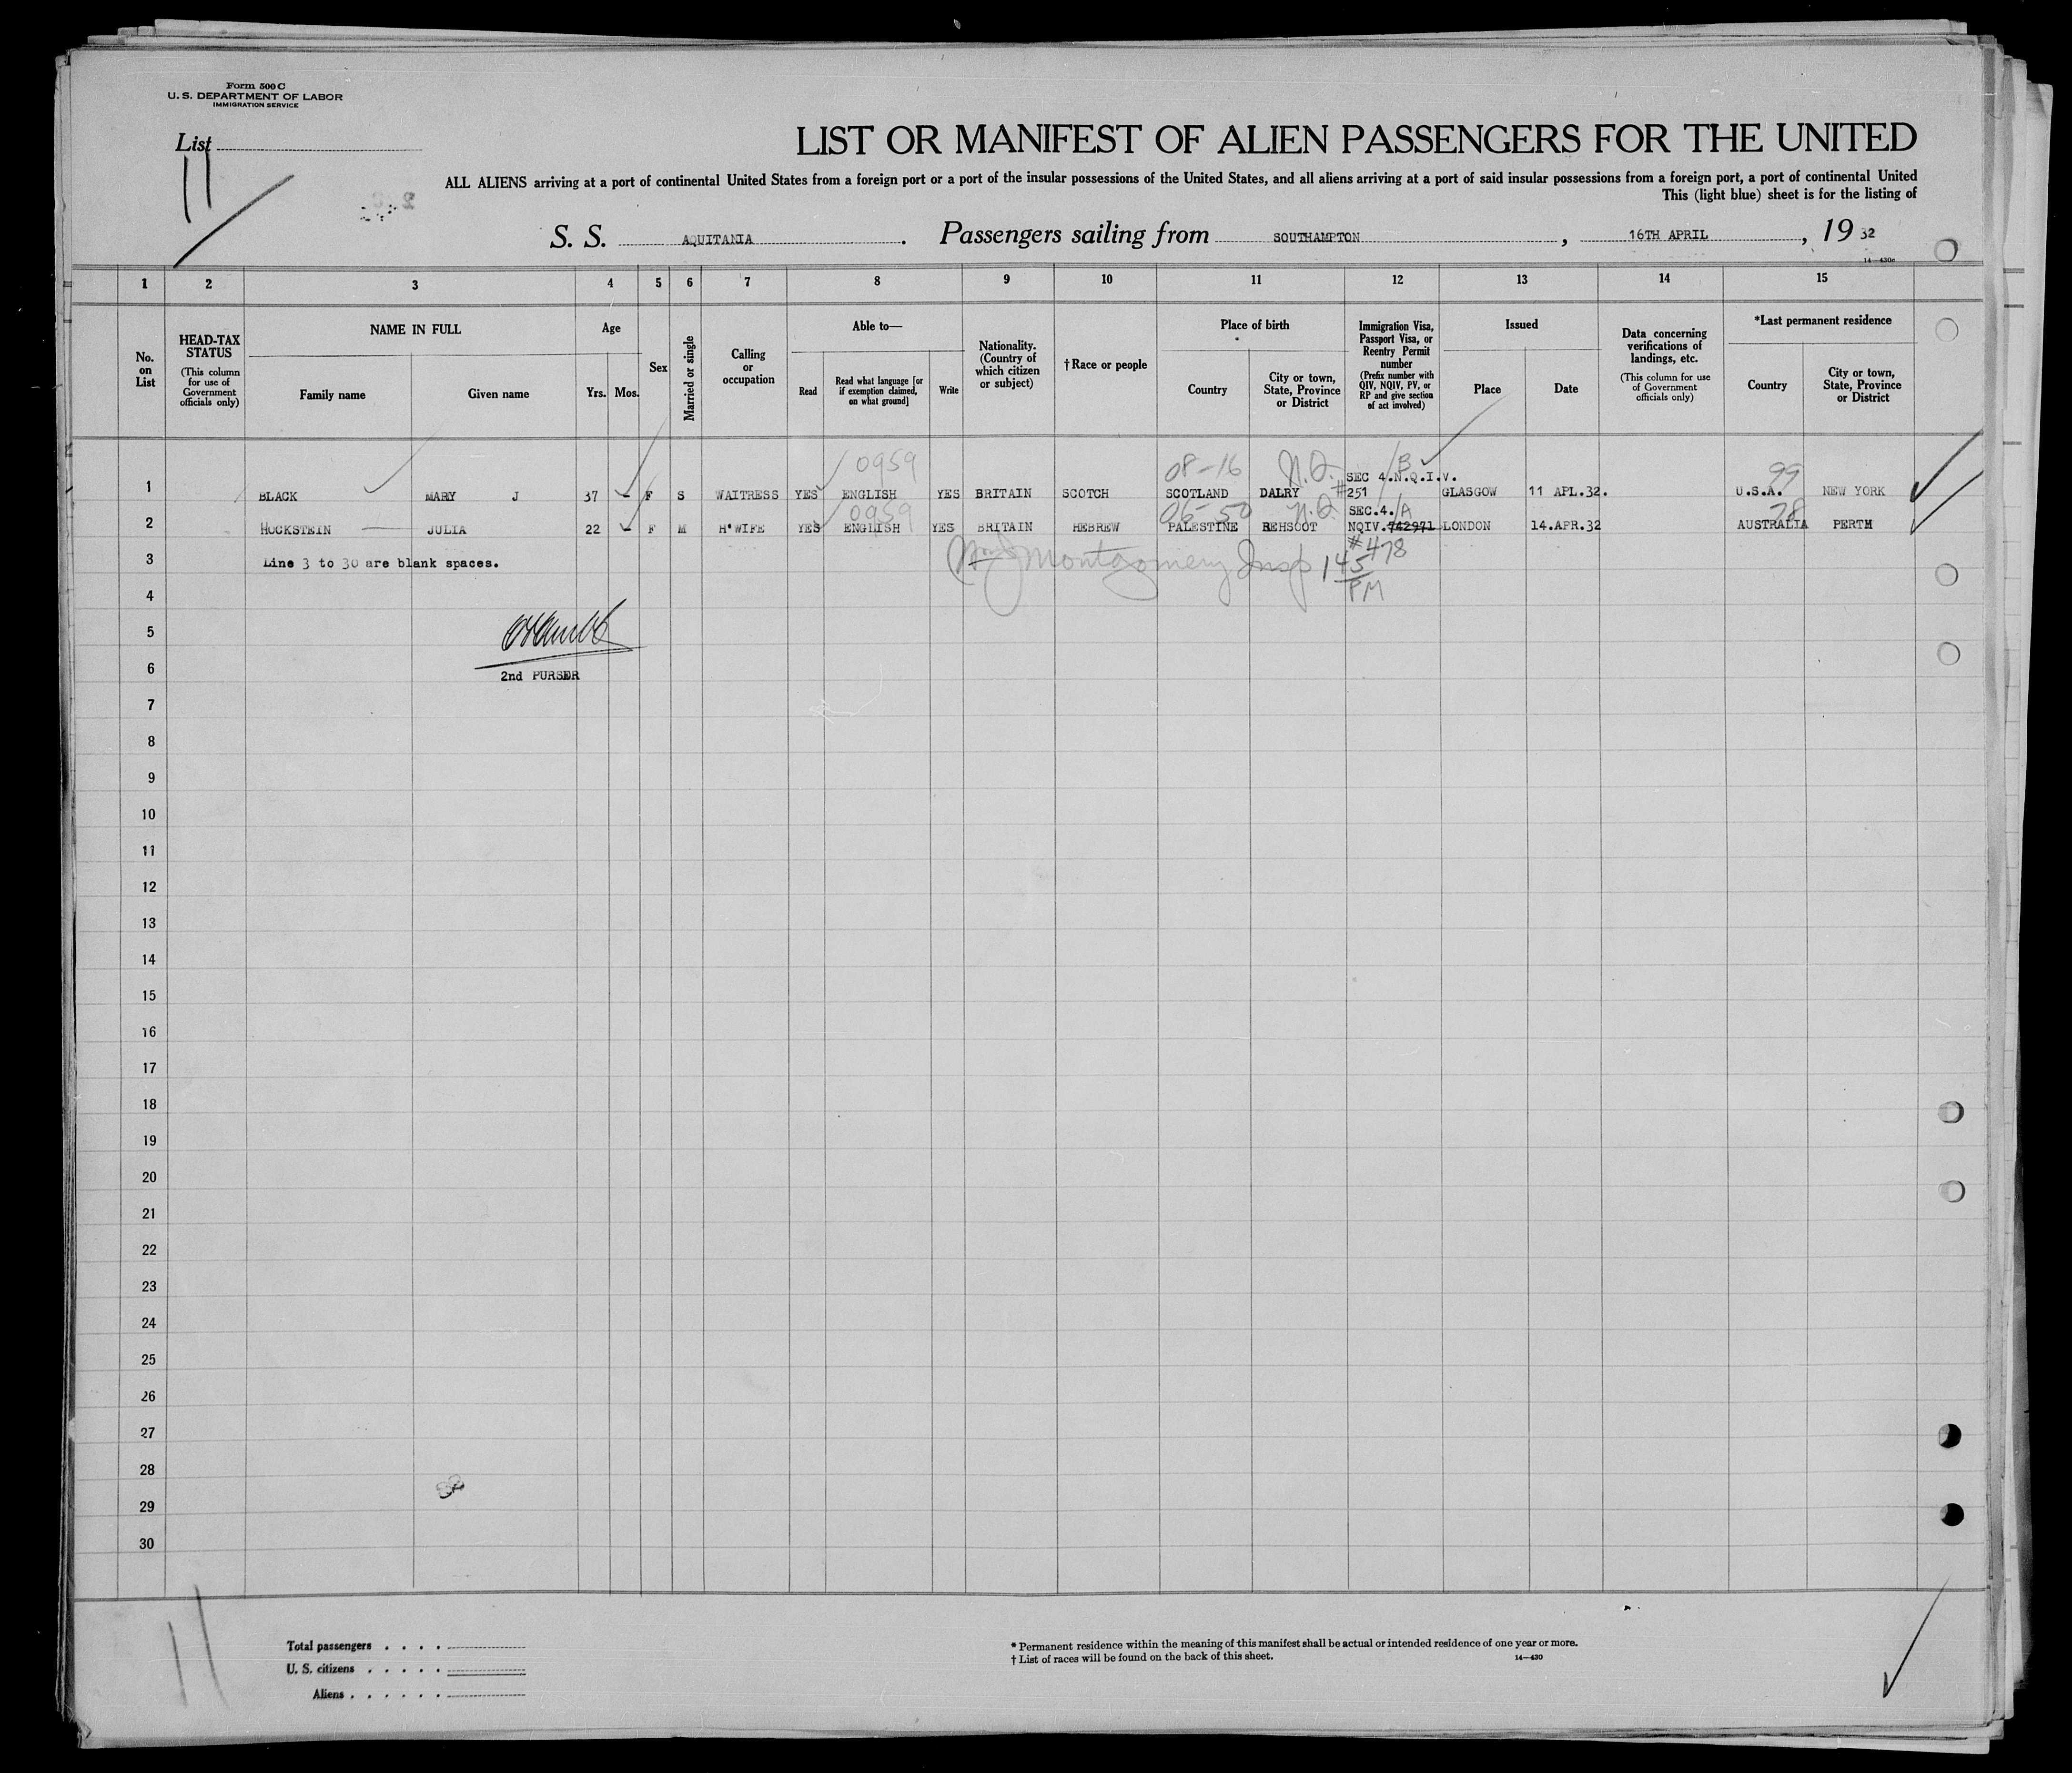 Form 500 C
U. S. DEPARTMENT OF LABOR
IMMIGRATION SERVICE
List
11
LIST OR MANIFEST OF ALIEN PASSENGERS FOR THE UNITED
ALL ALIENS arriving at a port of continental United States from a foreign port or a port of the insular possessions of the United States, and all aliens arriving at a port of said insular possessions from a foreign port, a port of continental United
This (light blue) sheet is for the listing of
S. S. AQUITANIA. Passengers sailing from SOUTHAMPTON, 16TH APRIL, 19 32
14—430c
1 2 3 4 5 6 7 8 9 10 11 12 13 14 15
No. on List
HEAD-TAX STATUS (This column for use of Government officials only)
NAME IN FULL
Family name
Given name
Age
Yrs. Mos.
Sex
Married or single
Calling or occupation
Able to—
Read
Read what language [or if exemption claimed, on what ground]
Write
Nationality. (Country of which citizen or subject)
†Race or people
Place of birth
Country
City or town, State, Province or District
Immigration Visa, Passport Visa, or Reentry Permit number (Prefix number with QIV, NQIV, PV, or RP and give section of act involved)
Issued
Place
Date
Data concerning verifications of landings, etc. (This column for use of Government officials only)
*Last permanent residence
Country
City or town, State, Province or District
0959 08-16 N.Q. SEC 4.N.Q.I.V. B 99
1 BLACK MARY J 37 - F S WAITRESS YES ENGLISH YES BRITAIN SCOTCH SCOTLAND DALRY #251 GLASGOW 11 APL.32. U.S.A. NEW YORK
0959 06-50 N.Q. SEC.4. A 78
2 HOCKSTEIN JULIA 22 - F M H'WIFE YES ENGLISH YES BRITAIN HEBREW PALESTINE REHSCOT NQIV.742971 LONDON 14.APR.32 AUSTRALIA PERTH
#478
3 Line 3 to 30 are blank spaces.
Montgomery Insp 145 PM
4
5
6
2nd PURSER
7
8
9
10
11
12
13
14
15
16
17
18
19
20
21
22
23
24
25
26
27
28
29
30
11
Total passengers . . . .
U. S. citizens . . . . .
Aliens . . . . . .
* Permanent residence within the meaning of this manifest shall be actual or intended residence of one year or more.
† List of races will be found on the back of this sheet.
14—430